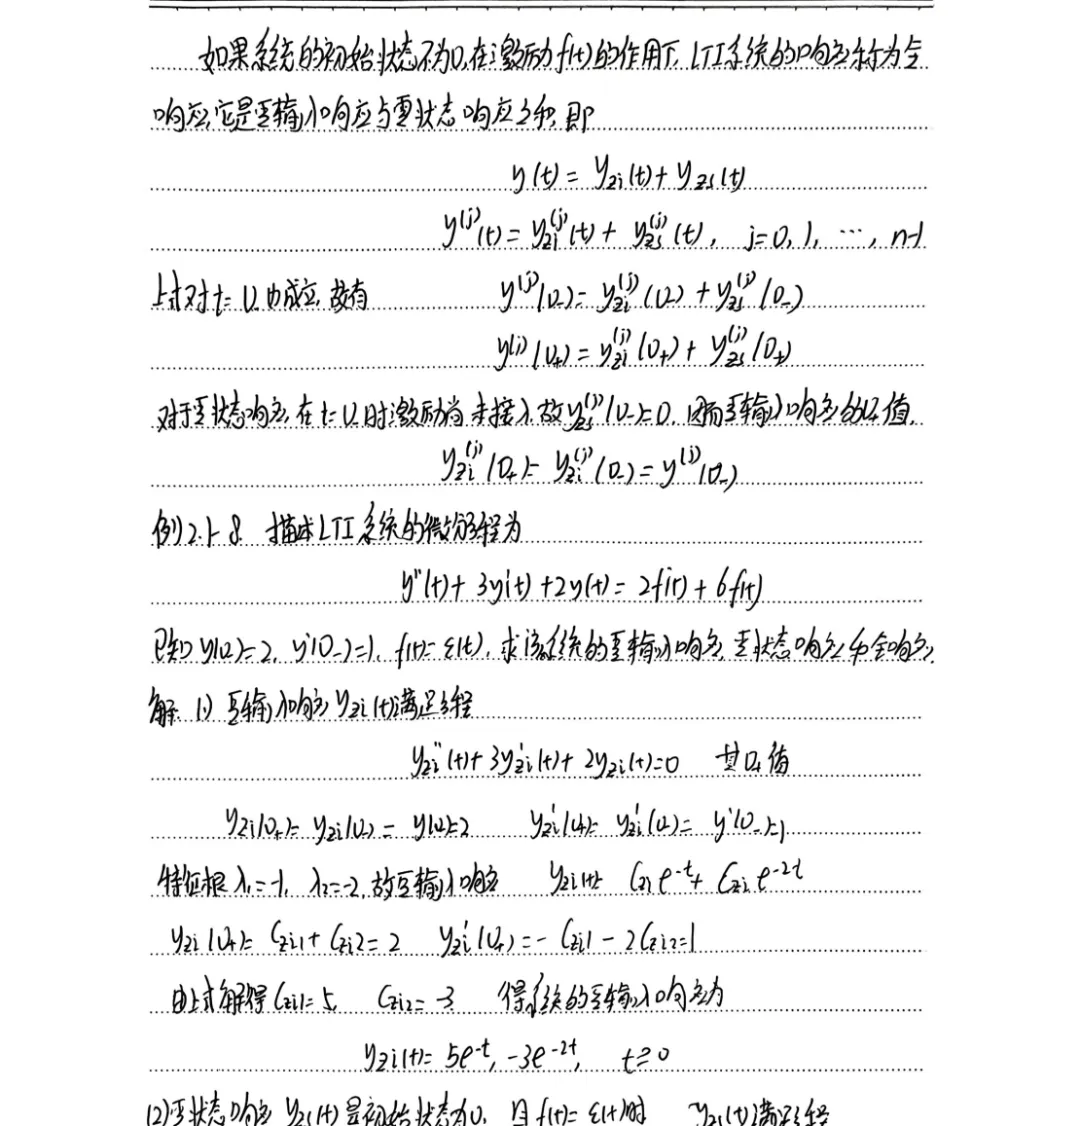 如果系统的初始状态不为0,在激励f(t)的作用下,LTI系统的响应称为全
响应,它是零输入响应与零状态响应之和,即
y(t) = yzi(t) + yzs(t)
y^(j)(t) = yzi^(j)(t) + yzs^(j)(t), j=0, 1, …, n-1
上式对t=0-也成立,故有 y^(j)(0-) = yzi^(j)(0-) + yzs^(j)(0-)
y^(j)(0+) = yzi^(j)(0+) + yzs^(j)(0+)
对于零状态响应,在t=0-时激励尚未接入,故yzs^(j)(0-)=0,因而零输入响应的0+值,
yzi^(j)(0+) = yzi^(j)(0-) = y^(j)(0-)
例2.1-8 描述LTI系统的微分方程为
y''(t) + 3y'(t) + 2y(t) = 2f'(t) + 6f(t)
已知y(0-)=2, y'(0-)=1, f(t)=ε(t),求该系统的零输入响应,零状态响应和全响应.
解 1) 零输入响应yzi(t)满足方程
yzi''(t) + 3yzi'(t) + 2yzi(t)=0 其0+值
yzi(0+) = yzi(0-) = y(0-)=2 yzi'(0+) = yzi'(0-) = y'(0-)=1
特征根λ1=-1, λ2=-2,故零输入响应 yzi(t)= Czi e^-t + Czi e^-2t
yzi(0+)= Czi1 + Czi2 = 2 yzi'(0+) = -Czi1 - 2Czi2=1
由上式解得Czi1=5, Czi2=-3 得系统的零输入响应为
yzi(t)= 5e^-t, -3e^-2t, t≥0
(2)零状态响应yzs(t)是初始状态为0,且f(t)=ε(t)时 yzs(t)满足方程